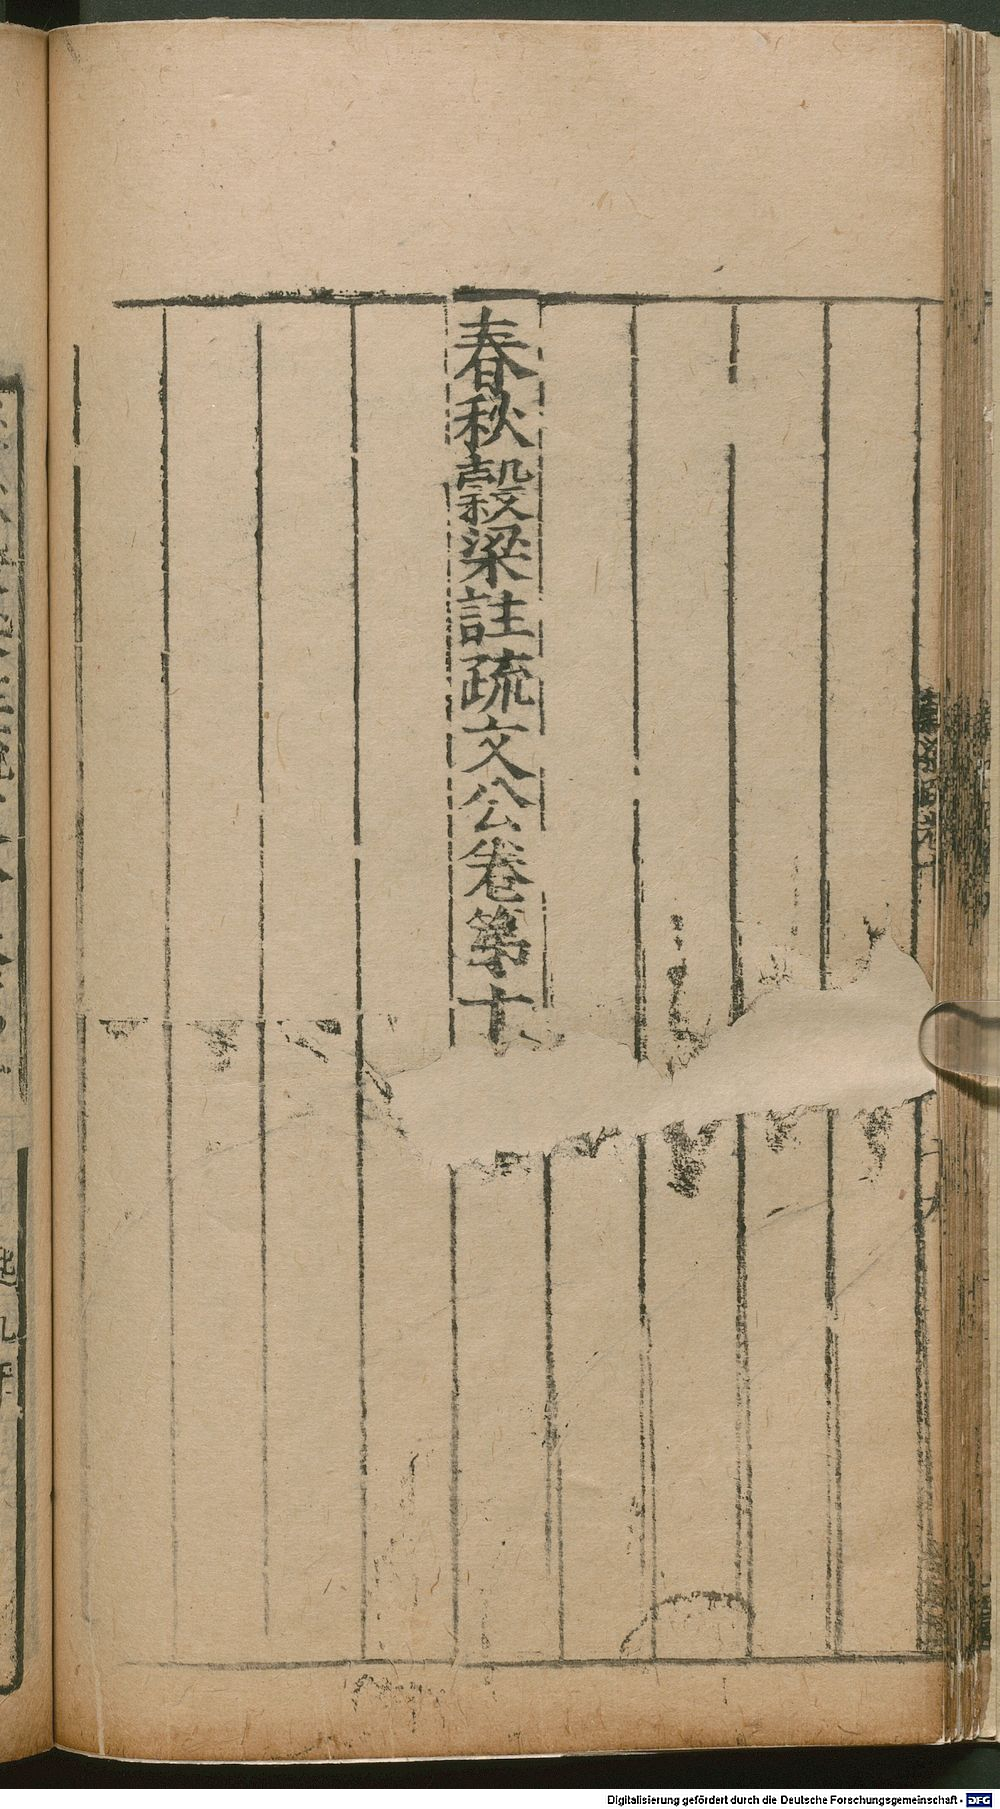 春秋穀梁註疏文公卷第十
Digitalisierung gefördert durch die Deutsche Forschungsgemeinschaft - DFG